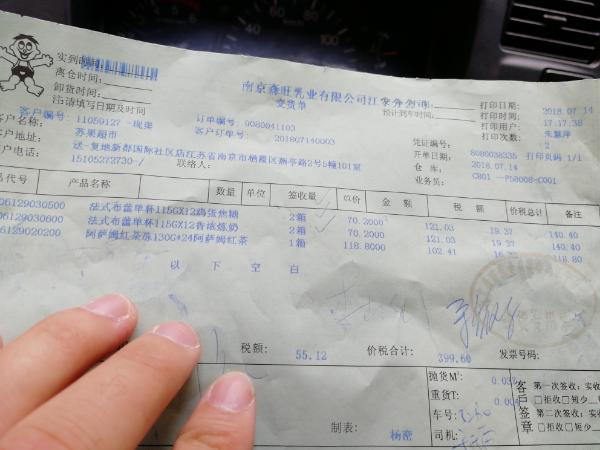 实到时间:
离仓时间:
卸货时间:
注:请填写日期及时间
南京森旺乳业有限公司江
交货单
打印日期: 2018.07.14
预计到车时间: 打印时间: 17:17:38
打印用户: 朱慧萍
打印次数: 2
客户编号: 11059127 一现卖 订单编号: 9080841103
客户名称: 苏果超市 客户订单号: 201807140003 凭证编号:
客户地址: 送-复地新都国际社区店江苏省南京市栖霞区燕亭路2号5幢101室 开单日期: 8080038335 打印页码 1/1
客户电话: 15105273730-/ 联络人: 仓 库: 2018.07.14
业务员: CB01 --P58008-C001
品代号 产品名称 数量 单位 签收量 单价 金 额 税 额 价税总计 备注
06129030500 法式布蕾单杯115GX12鸡蛋焦糖 2箱 70.2000 121.03 19.37 140.40
06129030600 法式布蕾单杯115GX12香浓炼奶 2箱 70.2000 121.03 19.37 140.40
06129020200 阿萨姆红茶冻130G*24阿萨姆红茶 1箱 118.8000 102.41 118.80
以 下 空 白
税额: 55.12 价税合计: 399.60 发票号码:
抛货M³: 0.032
重货T: 0.004
车号:
司机:
制表: 杨密
客户签章
第一次签收: 实收
□拒收□短少
第二次签收: 实收
□拒收□短少